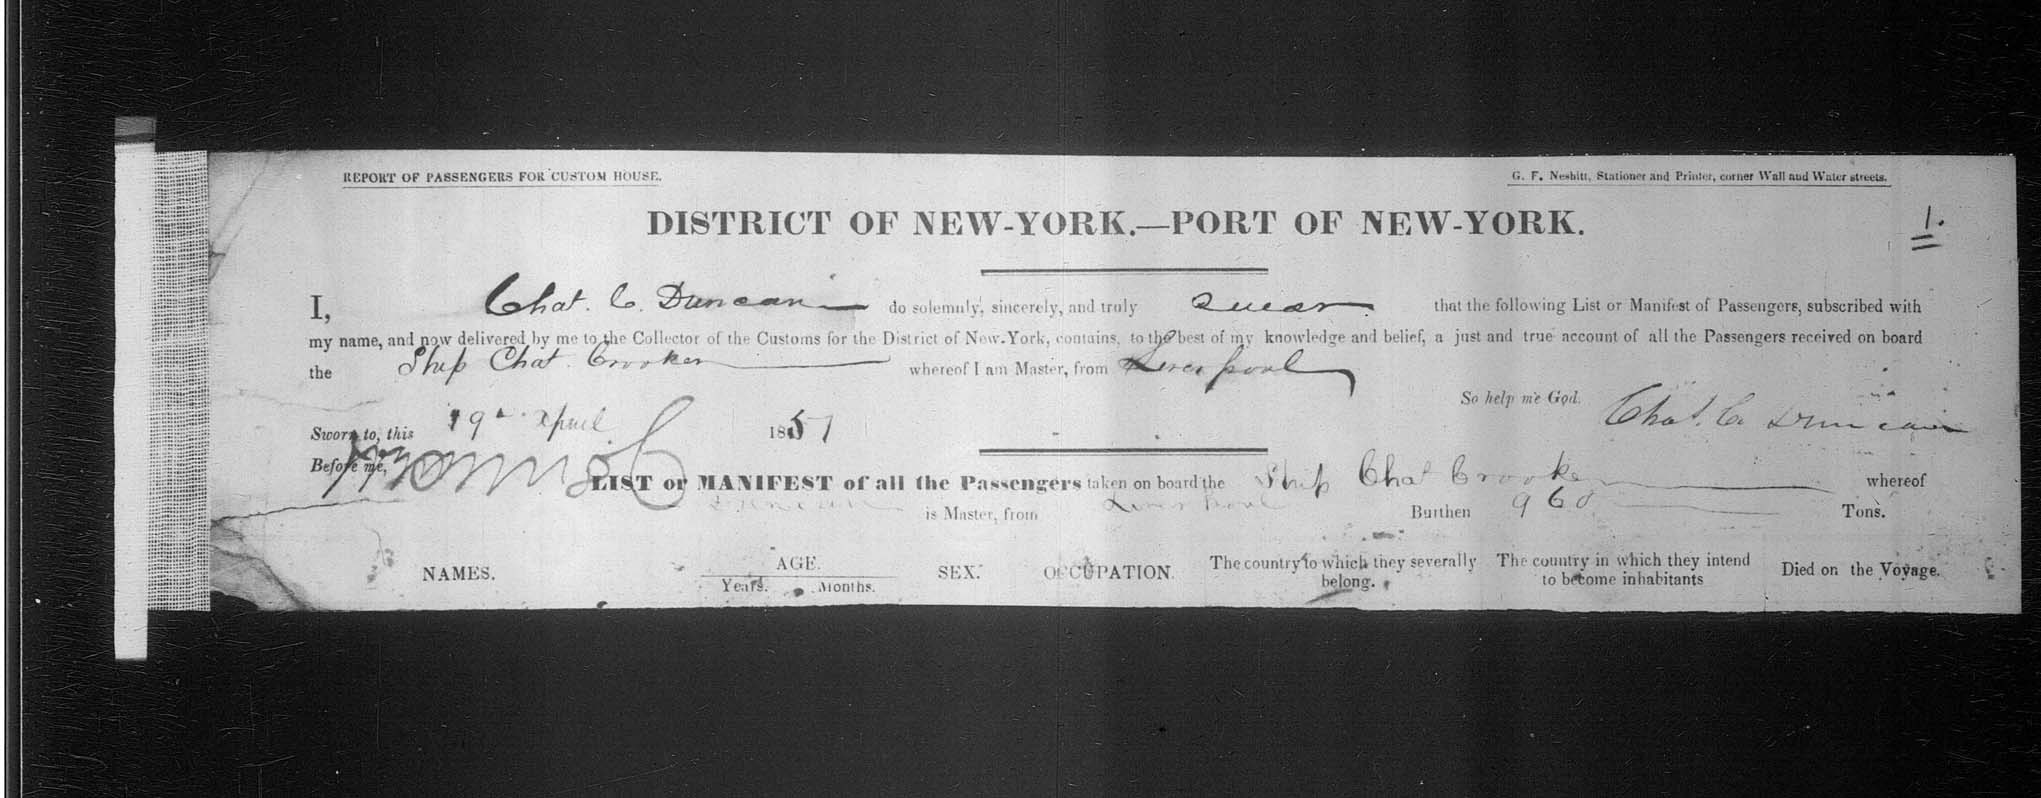 REPORT OF PASSENGERS FOR CUSTOM HOUSE.
G. F. Nesbitt, Stationer and Printer, corner Wall and Water streets.
DISTRICT OF NEW-YORK.—PORT OF NEW-YORK.
1.
I, Chas. C. Duncan do solemnly, sincerely, and truly swear that the following List or Manifest of Passengers, subscribed with
my name, and now delivered by me to the Collector of the Customs for the District of New-York, contains, to the best of my knowledge and belief, a just and true account of all the Passengers received on board
the Ship Chas. Crooker whereof I am Master, from Liverpool
So help me God.
Chas. C. Duncan
Sworn to, this 19th April 1851
Before me,
LIST or MANIFEST of all the Passengers taken on board the Ship Chas Crooker whereof
Duncan is Master, from Liverpool Burthen 960 Tons.
NAMES. AGE. SEX. OCCUPATION. The country to which they severally belong. The country in which they intend to become inhabitants Died on the Voyage.
Years. Months.